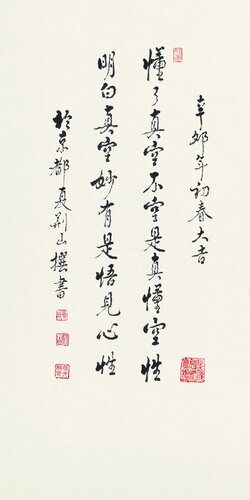 辛卯年初春大吉
懂了真空不空是真懂空性
明白真空妙有是悟見心性
於京都夏荊山撰書